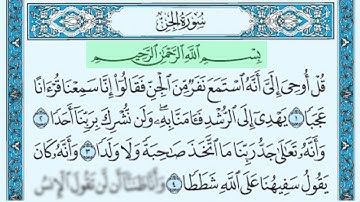 سُورَةُ الجِنِّ
بِسْمِ اللَّهِ الرَّحْمَٰنِ الرَّحِيمِ
قُلْ أُوحِىَ إِلَىَّ أَنَّهُ ٱسْتَمَعَ نَفَرٌ مِّنَ ٱلْجِنِّ فَقَالُوٓا۟ إِنَّا سَمِعْنَا قُرْءَانًا
عَجَبًا ١ يَهْدِىٓ إِلَى ٱلرُّشْدِ فَـَٔامَنَّا بِهِۦ ۖ وَلَن نُّشْرِكَ بِرَبِّنَآ أَحَدًا ٢
وَأَنَّهُۥ تَعَٰلَىٰ جَدُّ رَبِّنَا مَا ٱتَّخَذَ صَٰحِبَةً وَلَا وَلَدًا ٣ وَأَنَّهُۥ كَانَ
يَقُولُ سَفِيهُنَا عَلَى ٱللَّهِ شَطَطًا ٤ وَأَنَّا ظَنَنَّآ أَن لَّن تَقُولَ ٱلْإِنسُ